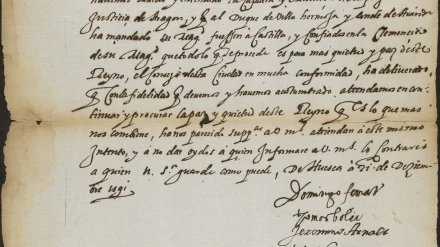 Justicia de Aragon, y q̃ al Duque de Villa hermosa y conde de Aranda
ha mandado su Mag.ᵈ fuessen a Castilla, y Confiados en la Clemencia
de su Mag.ᵈ que todo lo q̃ procede es para mas quietud y paz deste
Reyno, el Consejo desta Ciudad en mucha conformidad, ha deliberado
q̃ Con la fidelidad q̃ devemos y havemos acostumbrado, attendamos en con-
tinuar y procurar la paz y quietud deste Reyno q̃ es lo que mas
nos combiene, hanos parecido supp.ᶜᵃʳ a v. m.ˢ attiendan a este mismo
Intento, y a no dar oydos a quien Informare a V. m.ˢ lo Contrario
a quien n. s.ʳ guarde como puede, de Huesca a de Deziem-
bre 1591
Domingo
Jeronimo Arnalt